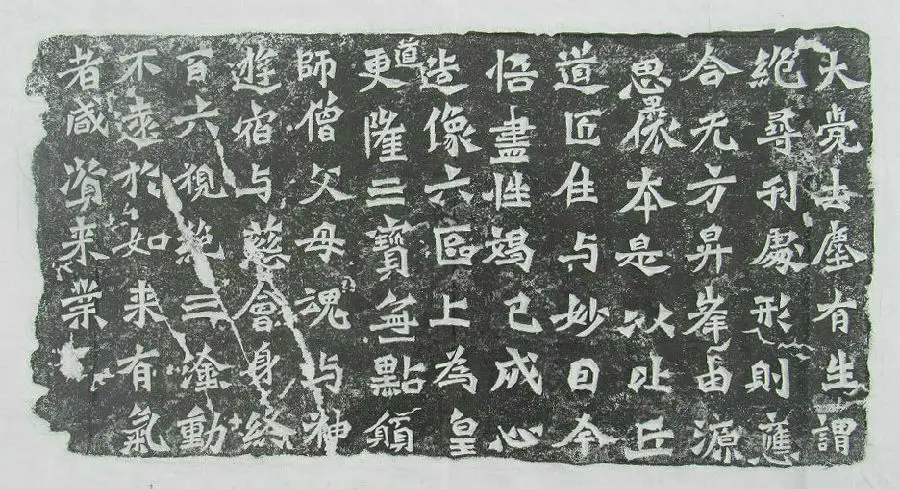 大覺去塵有生謂
絕尋刊處形則應
合无方昇峯由源
思襄本是以止丘
道匠住与妙曰今
悟盡性竭已成心
造像六區上為皇
道更隆三寶無點願
師僧父母魂与神
遊宿与慈會身終
百六視絕三淦動
不遠於如来有氣
者咸資来業